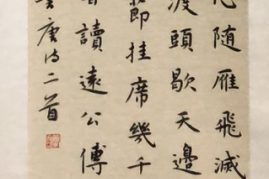 心随雁飛滅
渡頭歇天邊
節挂席幾千
嘗讀遠公傳
唐詩二首